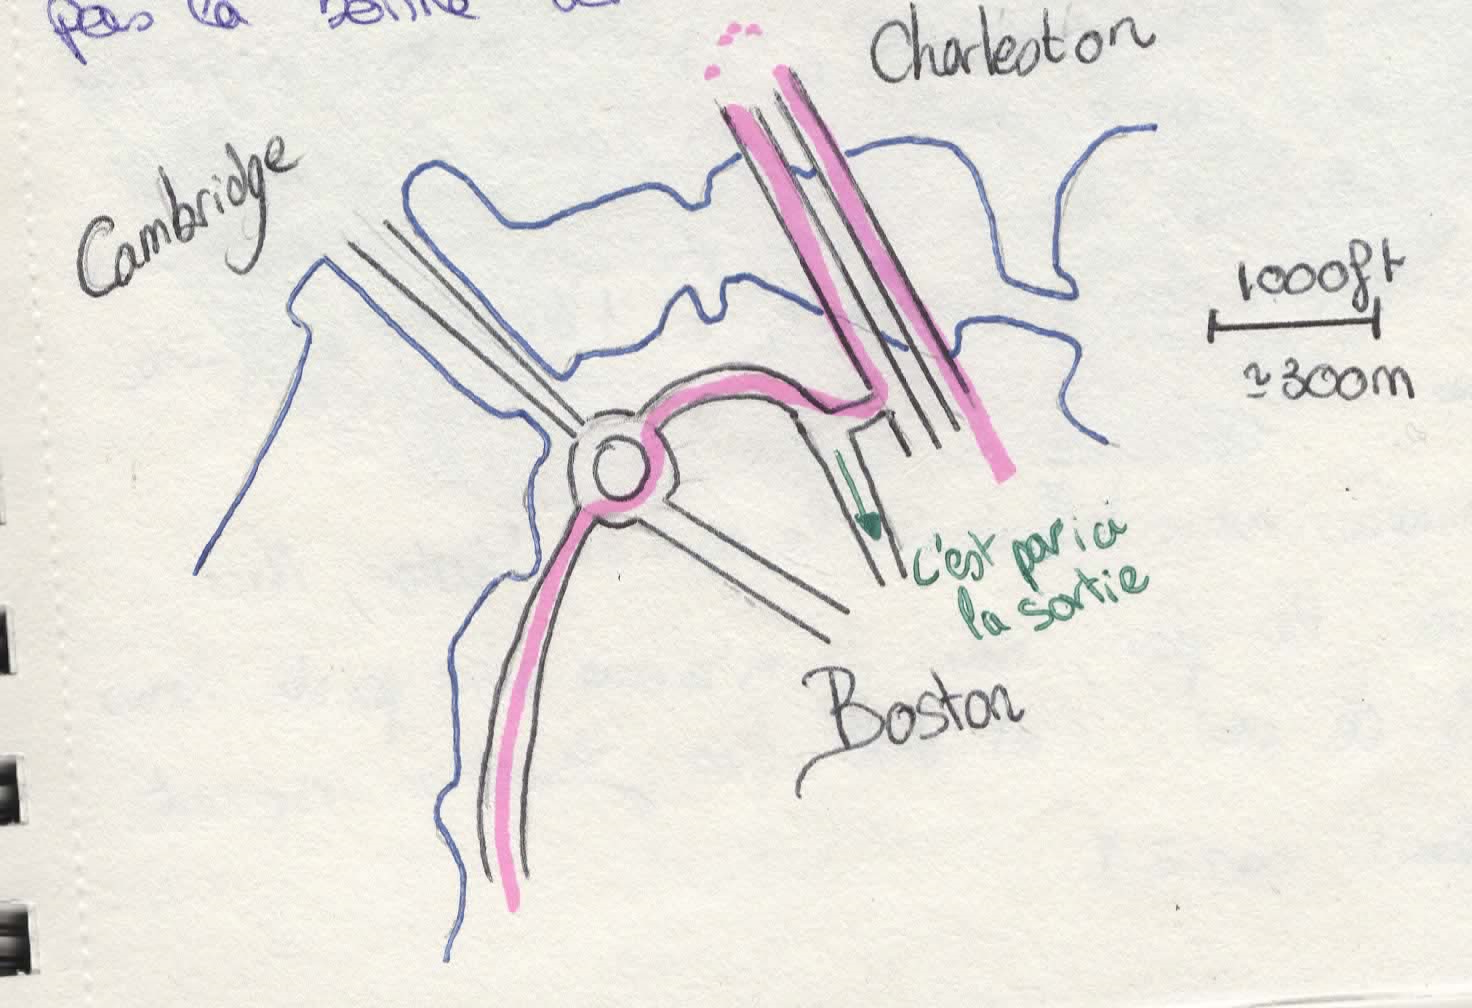 pas la bonne
Charleston
Cambridge
1000ft
~300m
c'est par ici
la sortie
Boston